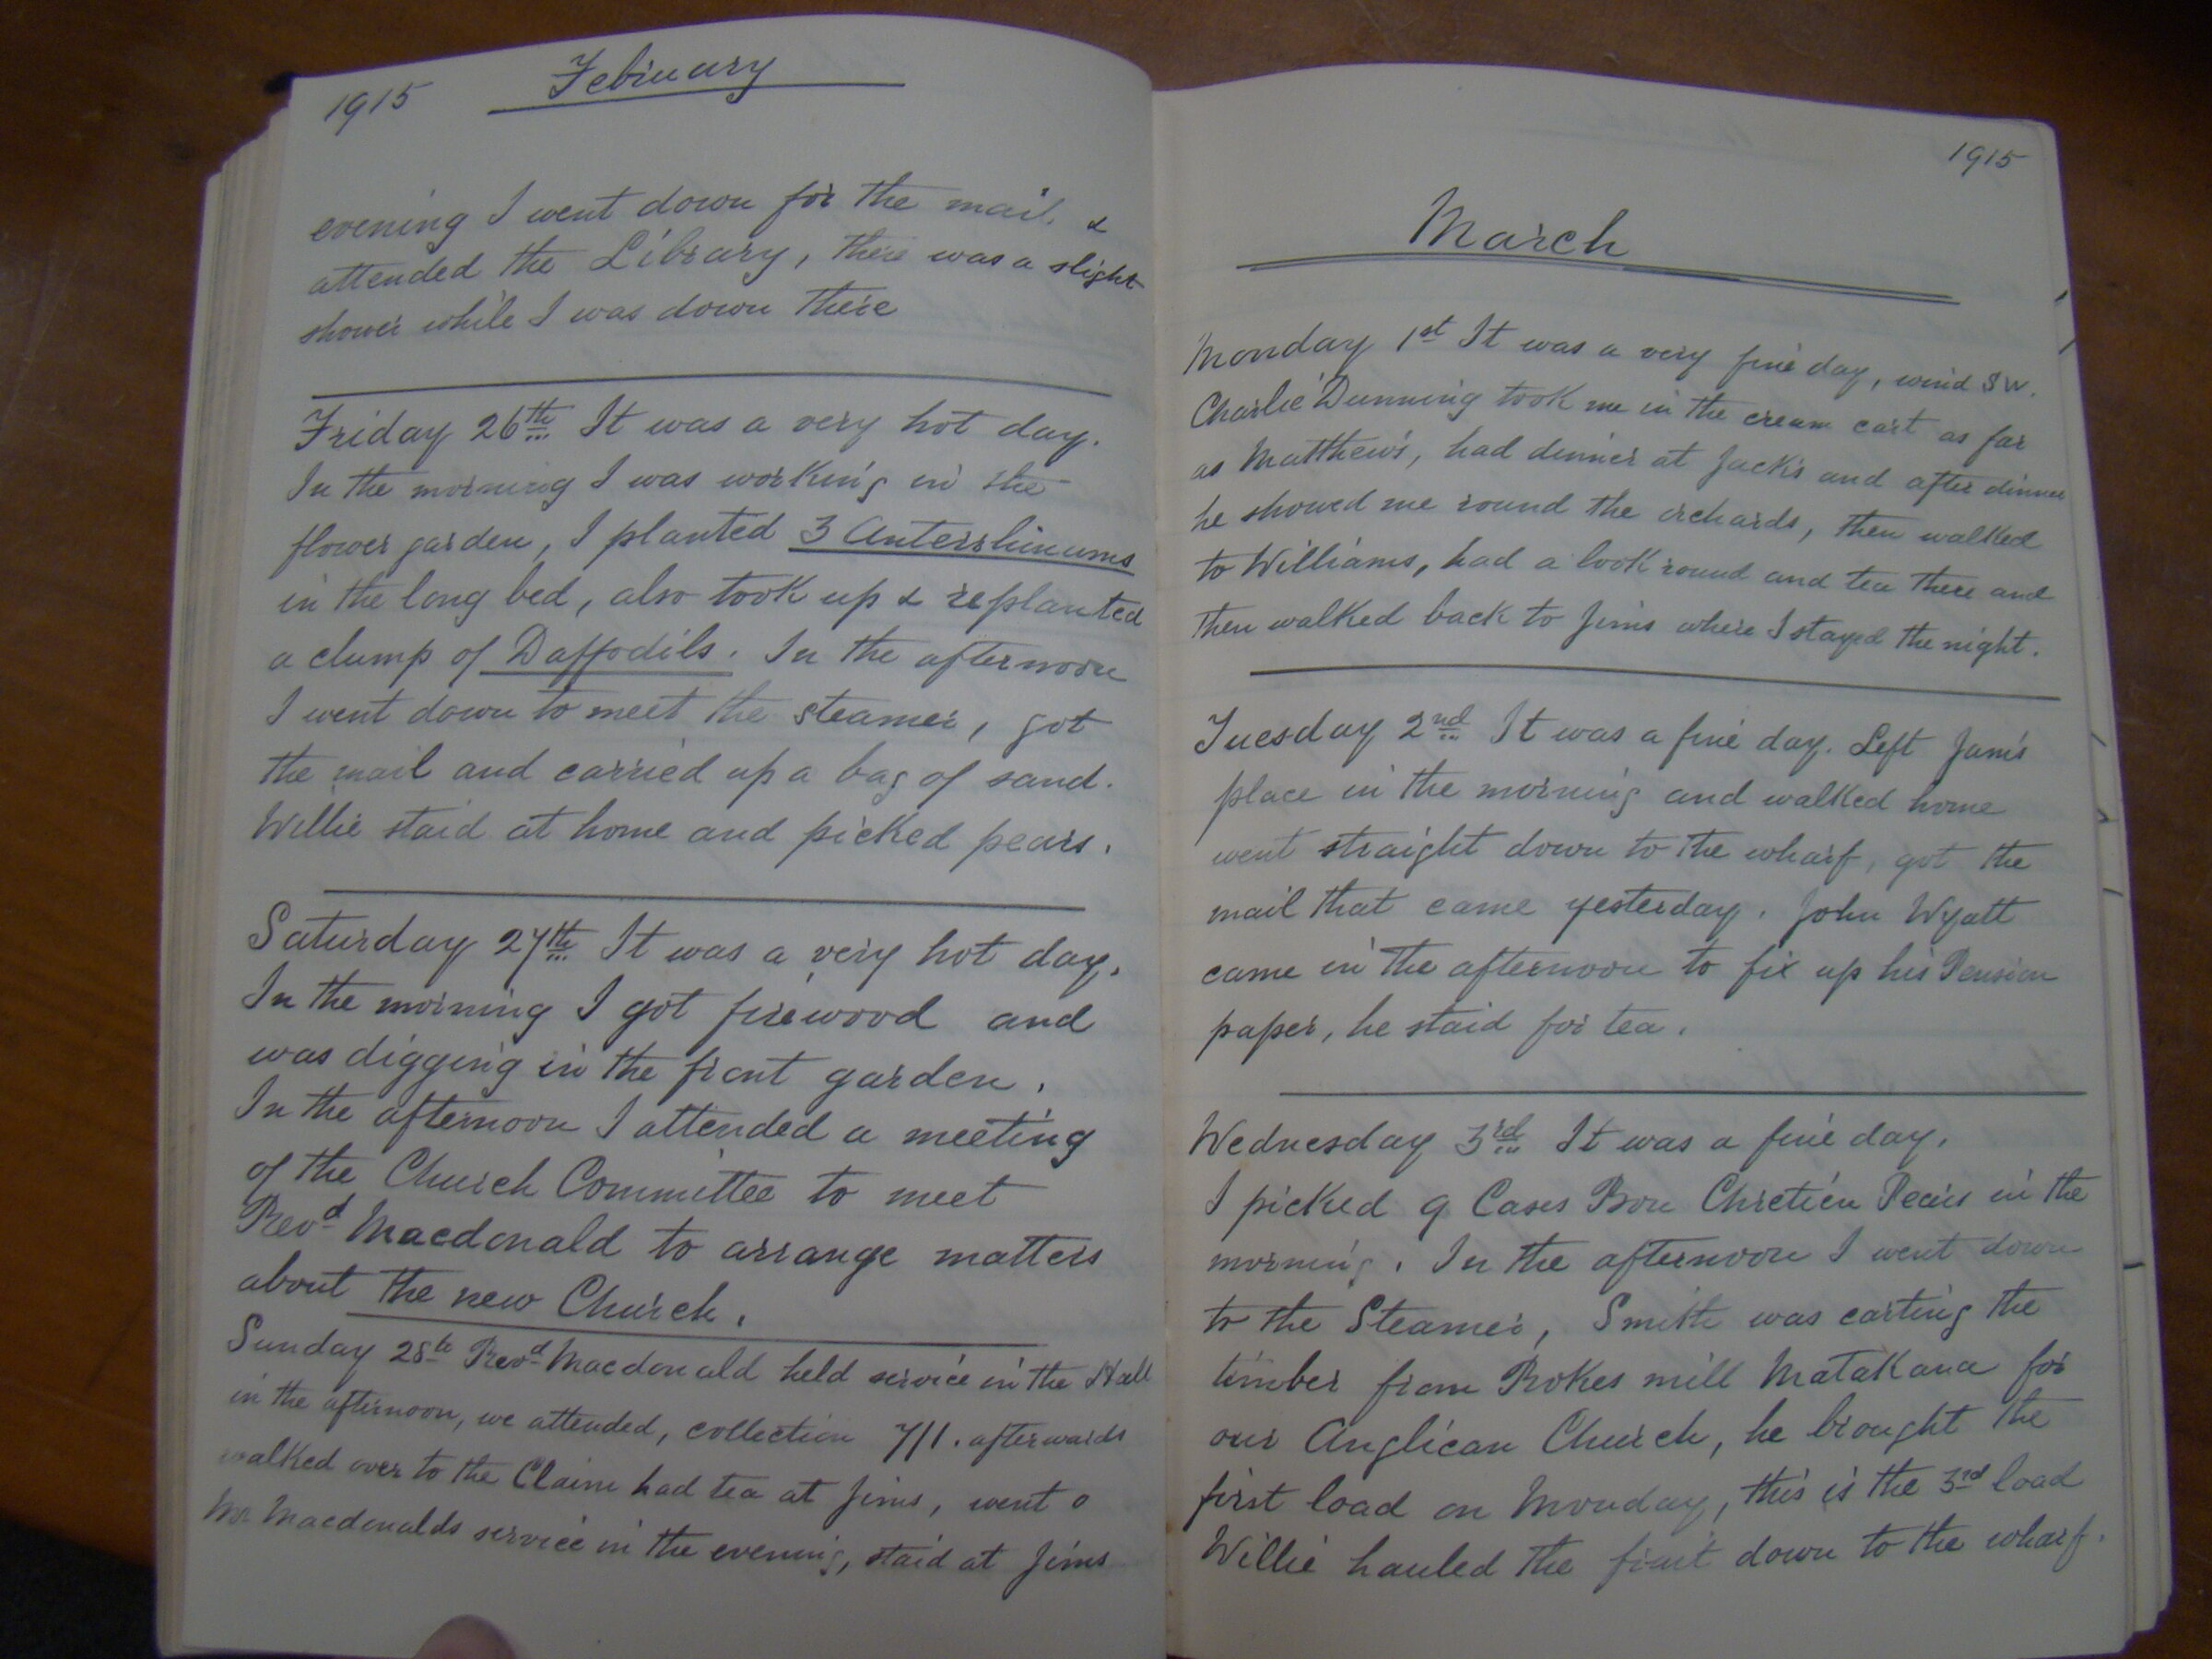 1915 February
evening I went down for the mail &
attended the Library, there was a slight
shower while I was down there
Friday 26th It was a very hot day.
In the morning I was working in the
flower garden, I planted 3 Anterrhinums
in the long bed, also took up & replanted
a clump of Daffodils. In the afternoon
I went down to meet the steamer, got
the mail and carried up a bag of sand.
Willie staid at home and picked pears.
Saturday 27th It was a very hot day.
In the morning I got firewood and
was digging in the front garden.
In the afternoon I attended a meeting
of the Church Committee to meet
Revd Macdonald to arrange matters
about the new Church.
Sunday 28th Revd Macdonald held service in the Hall
in the afternoon, we attended, collection 7/1. afterwards
walked over to the Claim had tea at Jims, went o
Mr Macdonalds service in the evening, staid at Jims
1915
March
Monday 1st It was a very fine day, wind SW.
Charlie Dunning took me in the cream cart as far
as Matthews, had dinner at Jacks and after dinner
he showed me round the orchards, then walked
to Williams, had a look round and tea there and
then walked back to Jims where I stayed the night.
Tuesday 2nd It was a fine day. Left Jams
place in the morning and walked home
went straight down to the wharf, got the
mail that came yesterday. John Wyatt
came in the afternoon to fix up his Pension
paper, he staid for tea.
Wednesday 3rd It was a fine day.
I picked 9 Cases Bon Chretien Pears in the
morning. In the afternoon I went down
to the Steamer, Smith was carting the
timber from Rokes mill Matakana for
our Anglican Church, he brought the
first load on Monday, this is the 3rd load
Willie hauled the fruit down to the wharf.